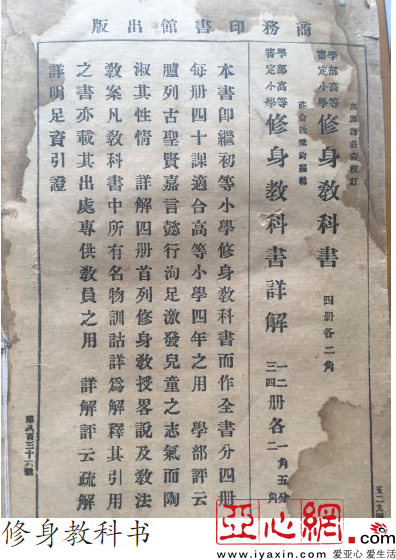 商務印書館出版
高鳳謙莊俞校訂
學部高等
審定小學
修身教科書 四册各二角
學部高等
審定小學
修身教科書詳解 一二三四册各一角五分二角
本書即繼初等小學修身教科書而作全書分四册
每册四十課適合高等小學四年之用 學部評云
臚列古聖賢嘉言懿行洵足激發兒童之志氣而陶
淑其性情 詳解四册首列修身教授畧說及教法
教案凡教科書中所有名物訓詁詳爲解釋其引用
之書亦載其出處專供教員之用 詳解評云疏解
詳明足資引證
修身教科书
亚心網.com
www.iyaxin.com 爱亚心 爱生活